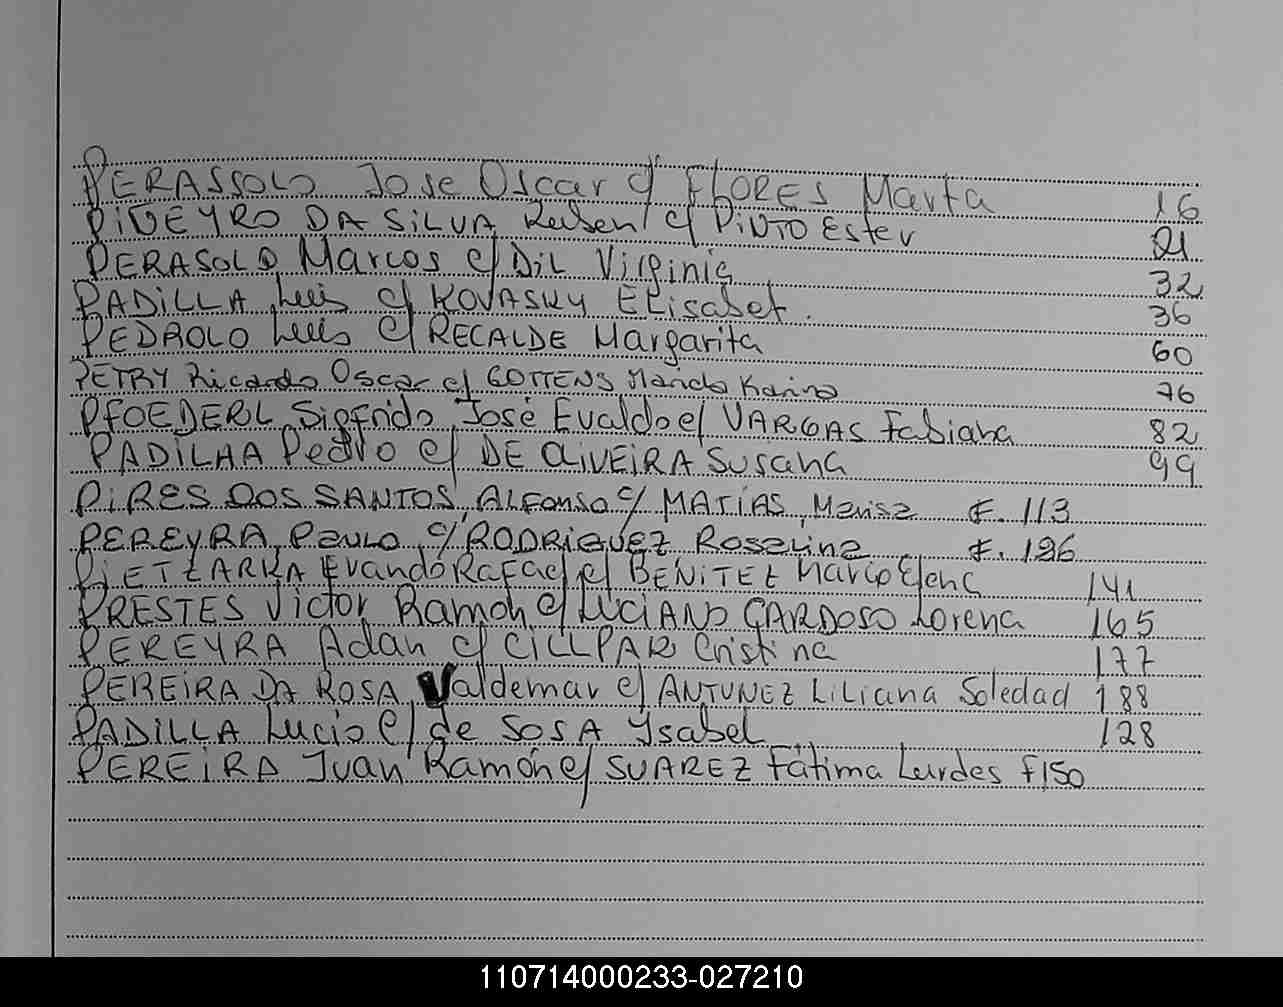 PERASSOLO Jose Oscar c/ FLORES Marta 16
PIÑEYRO DA SILVA Ruben c/ PINTO Ester 21
PERASOLO, Marcos c/ DIL Virginia 32
PADILLA Luis c/ KOVASKY Elisabet. 36
PEDROLO Luis c/ RECALDE Margarita 60
PETRY Ricardo Oscar c/ GOTTENS Karina 76
PFOEDERL Sigfrido José Evaldo c/ VARGAS Fabiana 82
PADILHA Pedro c/ DE OLIVEIRA Susana 99
PIRES DOS SANTOS, ALFONSO c/ MATÍAS, Marisa F. 113
PEREYRA, Paulo, c/ RODRIGUEZ Roselina F. 126
Evando Rafael c/ BENITEZ Elena 141
PRESTES Victor Ramón c/ LUCIANO CARDOSO Lorena 165
PEREYRA Adan c/ CILLPAR Cristina 177
PEREIRA DA ROSA, Valdemar c/ ANTUNEZ Liliana Soledad 188
PADILLA Lucio c/ de SOSA Ysabel 128
PEREIRA Juan Ramón c/ SUAREZ Fátima Lurdes F150
110714000233-027210